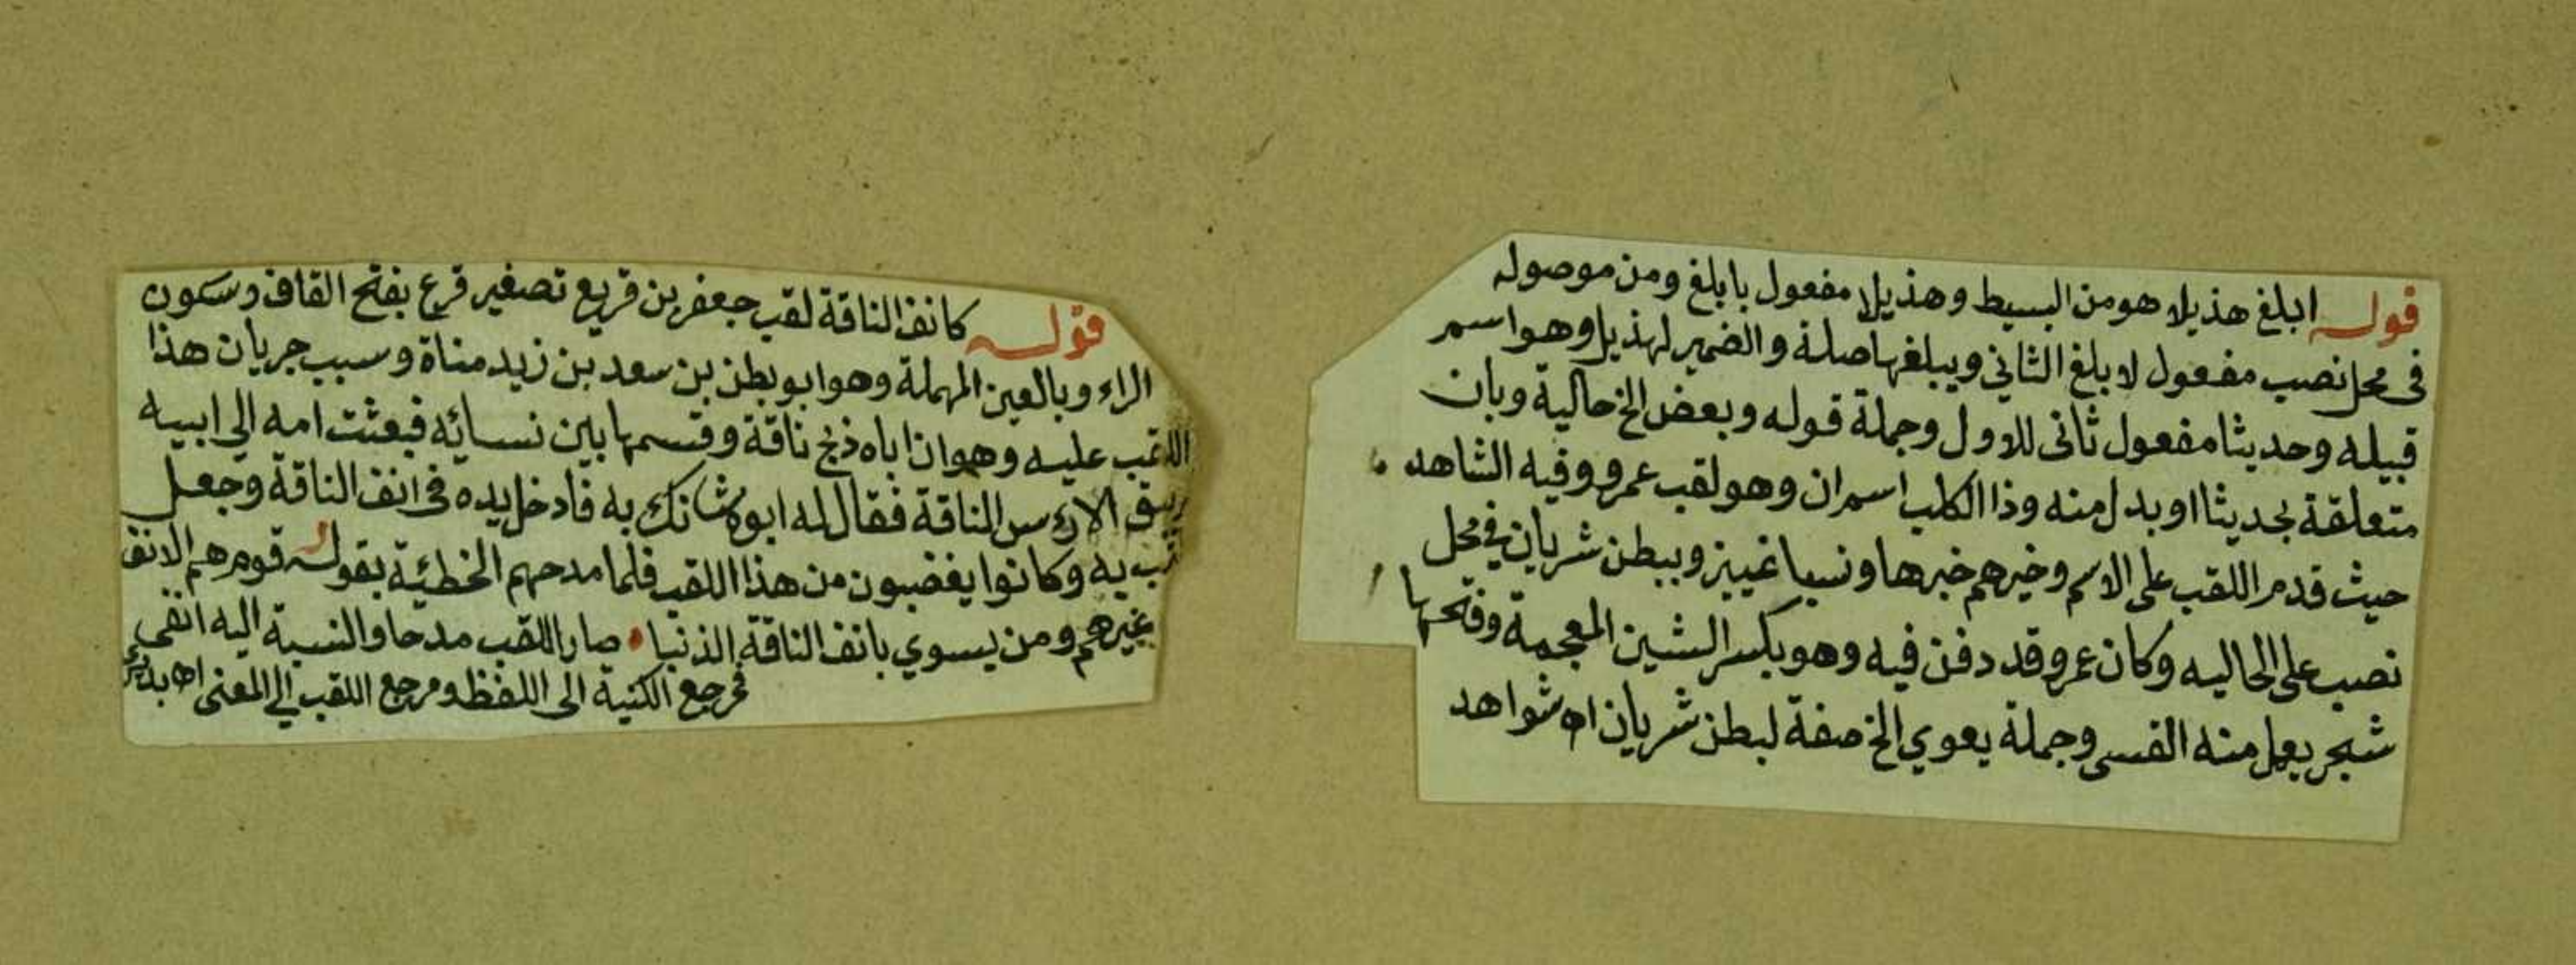 قوله ابلغ هذيلا هو من البسيط وهذيلا مفعول بابلغ ومن موصوله
فى محل نصب مفعول لابلغ الثاني ويبلغها صلة والضمير لهذيل وهو اسم
قبيله وحديثا مفعول ثانى للاول وجملة قوله وبعض الخ حالية وبان
متعلقة بحديثا او بدل منه وذا الكلب اسم ان وهو لقب عمرو وفيه الشاهد
حيث قدم اللقب على الاسم وخيرهم خبرها ونسبا تمييز وببطن شريان في محل
نصب على الحاليه وكان عمرو قد دفن فيه وهو بكسر الشين المعجمة وفتحها
شجر يعمل منه القسى وجملة يعوي الخ صفة لبطن شريان اه شواهد
قوله كانف الناقة لقب جعفر بن قريع تصغير قرع بفتح القاف وسكون
الراء وبالعين المهملة وهو ابو بطن بن سعد بن زيد مناة وسبب جريان هذا
اللقب عليه وهو ان اباه ذبح ناقة وقسمها بين نسائه فبعثت امه الى ابيه
يبق الا رءس الناقة فقال له ابوه شانك به فادخل يده فى انف الناقة وجعل
به وكانوا يغضبون من هذا اللقب فلما مدحهم الخطئية بقوله قوم هم الانف
غيرهم ومن يسوي بانف الناقة الذنبا صار اللقب مدحا والنسبة اليه انفى
فمرجع الكنية الى اللفظ ومرجع اللقب الي المعنى اه